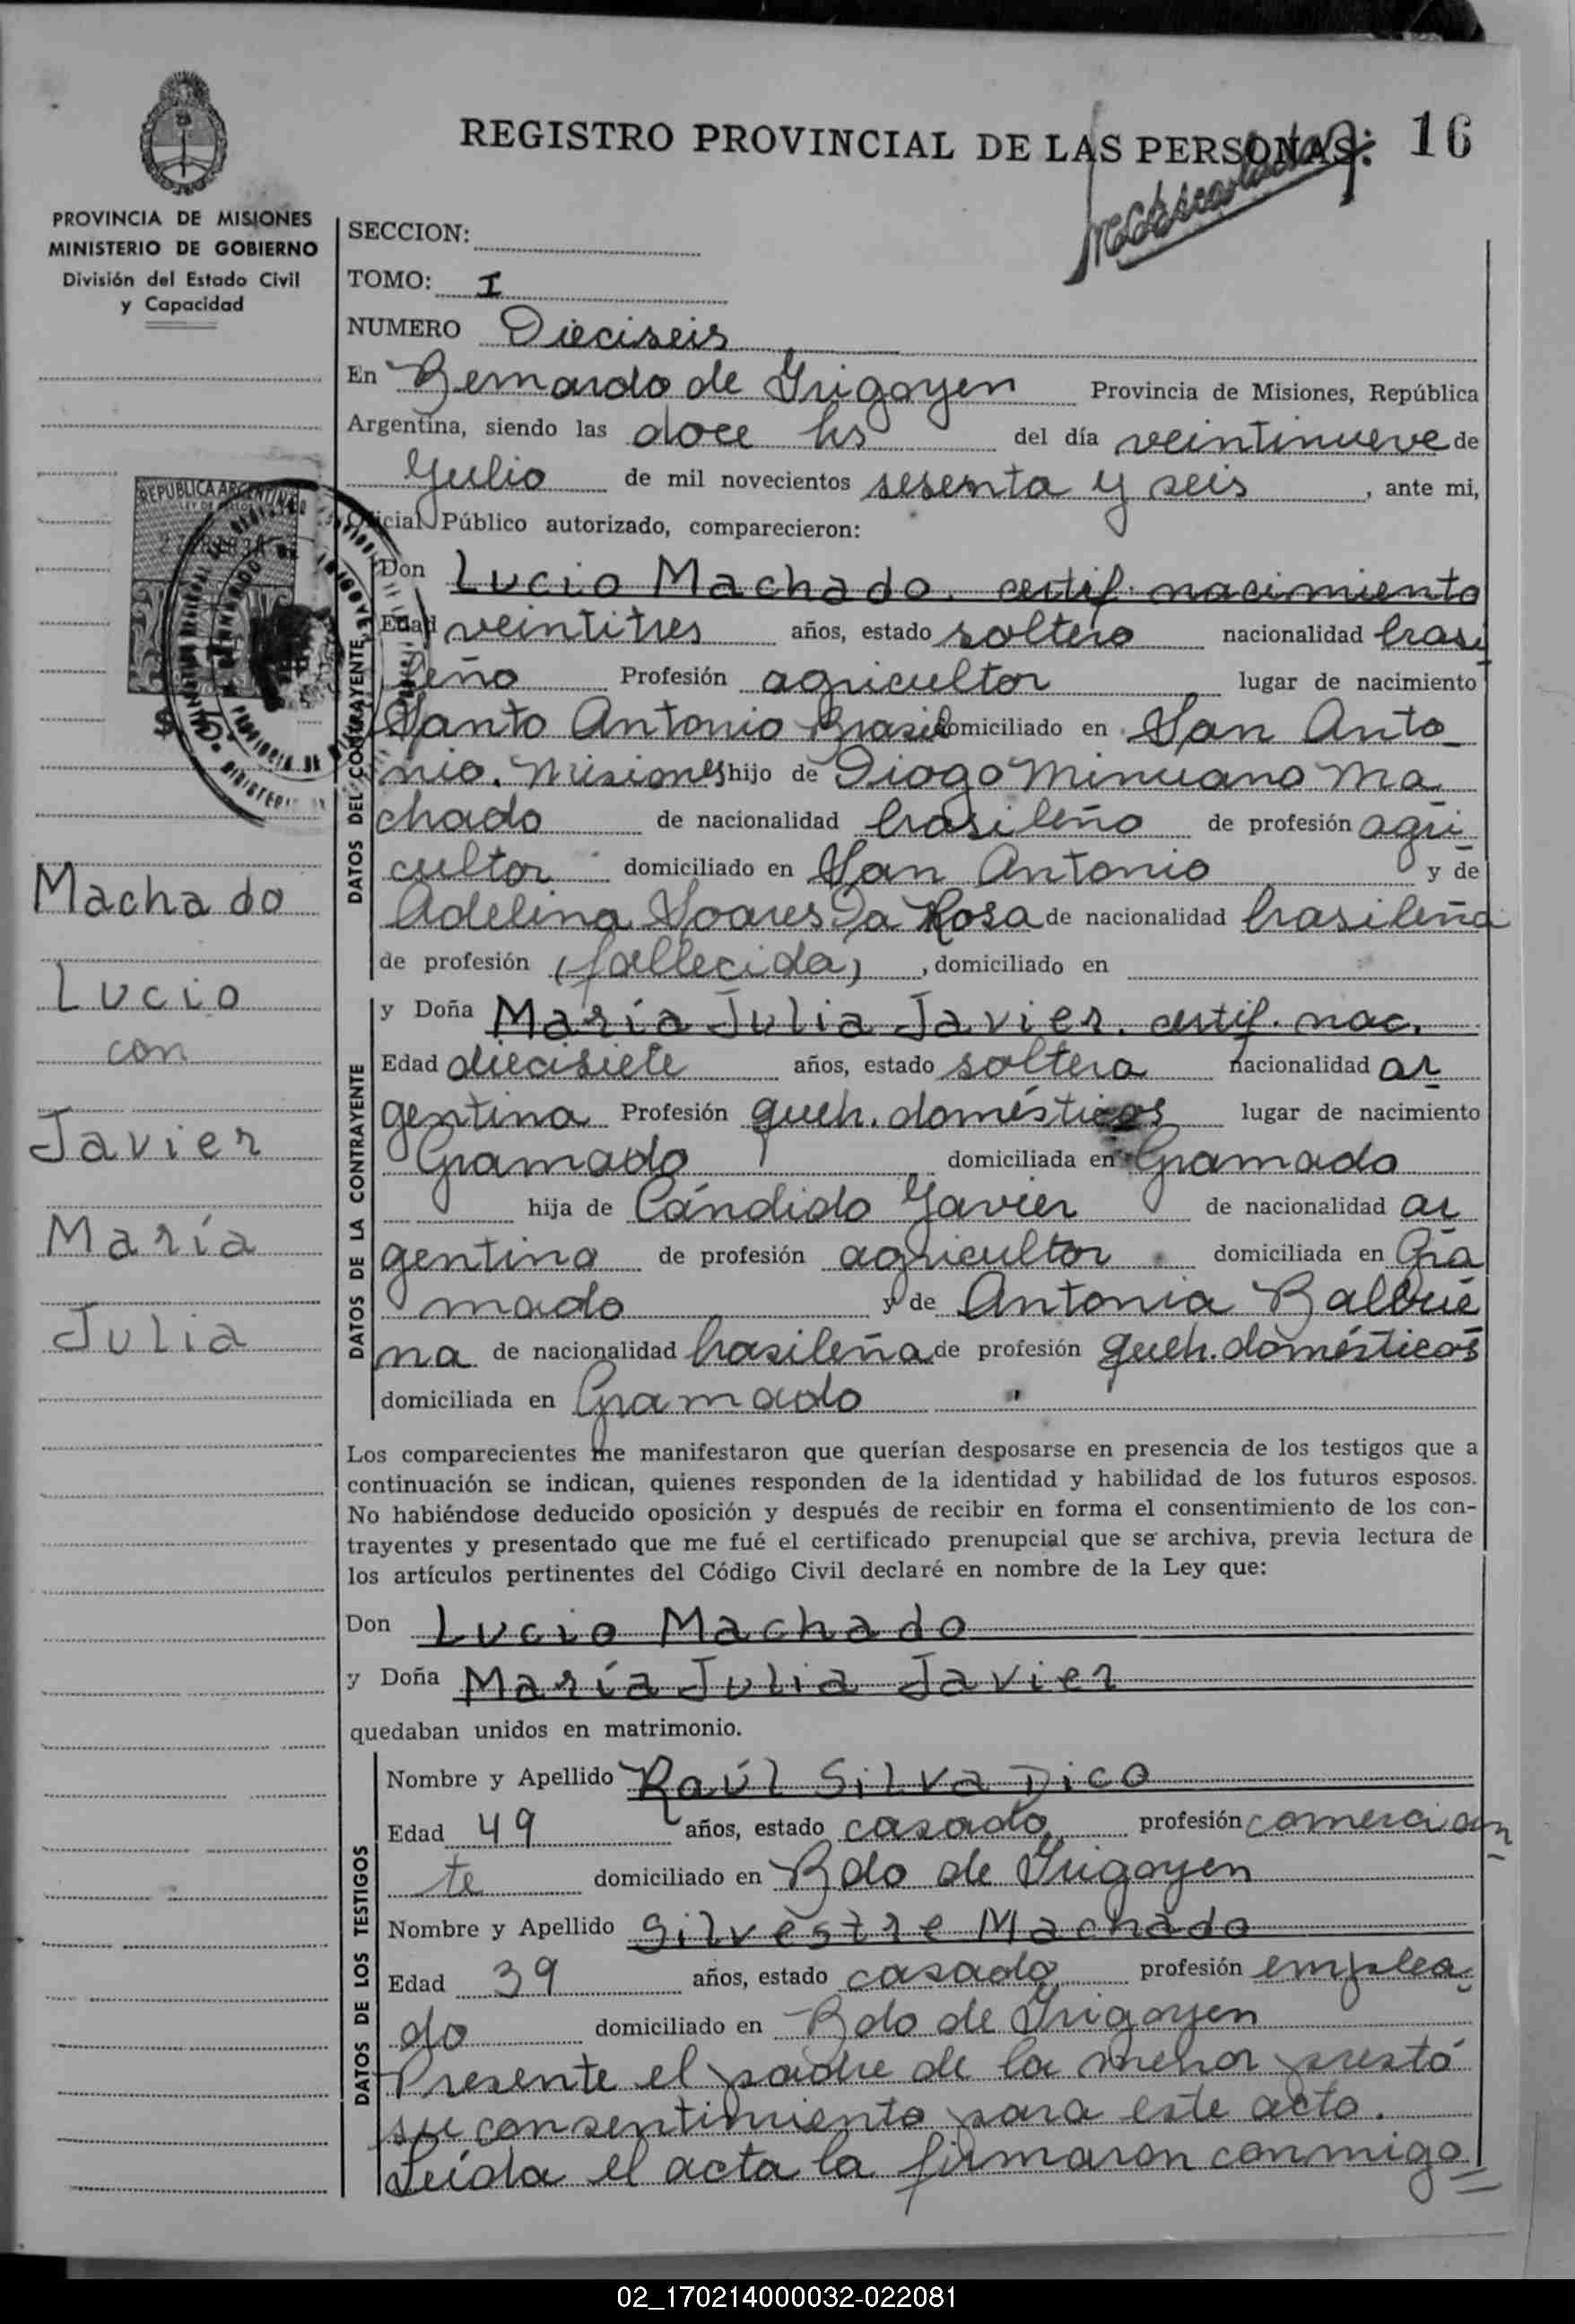 REGISTRO PROVINCIAL DE LAS PERSONAS: 16
PROVINCIA DE MISIONES
MINISTERIO DE GOBIERNO
División del Estado Civil
y Capacidad
SECCION:
TOMO: I
NUMERO Dieciseis
En Bernardo de Irigoyen Provincia de Misiones, República
Argentina, siendo las doce hs del día veintinueve de
Julio de mil novecientos sesenta y seis, ante mi,
Oficial Público autorizado, comparecieron:
REPUBLICA ARGENTINA
DATOS DEL CONTRAYENTE
Don Lucio Machado. certif. nacimiento
Edad veintitres años, estado soltero nacionalidad brasi
leño Profesión agricultor lugar de nacimiento
Santo Antonio Brasil domiciliado en San Anto
nio. Misiones hijo de Diogo Minuano Ma
chado de nacionalidad brasileño de profesión agri
cultor domiciliado en San Antonio y de
Adelina Soares Da Rosa de nacionalidad brasileña
de profesión (fallecida), domiciliado en
Machado
Lucio
con
Javier
María
Julia
DATOS DE LA CONTRAYENTE
y Doña María Julia Javier. certif. nac.
Edad diecisiete años, estado soltera nacionalidad ar
gentina Profesión queh. domésticos lugar de nacimiento
Gramado domiciliada en Gramado
hija de Cándido Javier de nacionalidad ar
gentina de profesión agricultor domiciliada en Gra
mado y de Antonia Balbue
na de nacionalidad brasileña de profesión queh. domésticos
domiciliada en Gramado
Los comparecientes me manifestaron que querían desposarse en presencia de los testigos que a
continuación se indican, quienes responden de la identidad y habilidad de los futuros esposos.
No habiéndose deducido oposición y después de recibir en forma el consentimiento de los con-
trayentes y presentado que me fué el certificado prenupcial que se archiva, previa lectura de
los artículos pertinentes del Código Civil declaré en nombre de la Ley que:
Don Lucio Machado
y Doña María Julia Javier
quedaban unidos en matrimonio.
DATOS DE LOS TESTIGOS
Nombre y Apellido Raúl Silva Dico
Edad 49 años, estado casado profesión comercian
te domiciliado en Bdo de Irigoyen
Nombre y Apellido Silvestre Machado
Edad 39 años, estado casado profesión emplea
do domiciliado en Bdo de Irigoyen
Presente el padre de la menor prestó
su consentimiento para este acto.
Leída el acta la firmaron conmigo
02_170214000032-022081